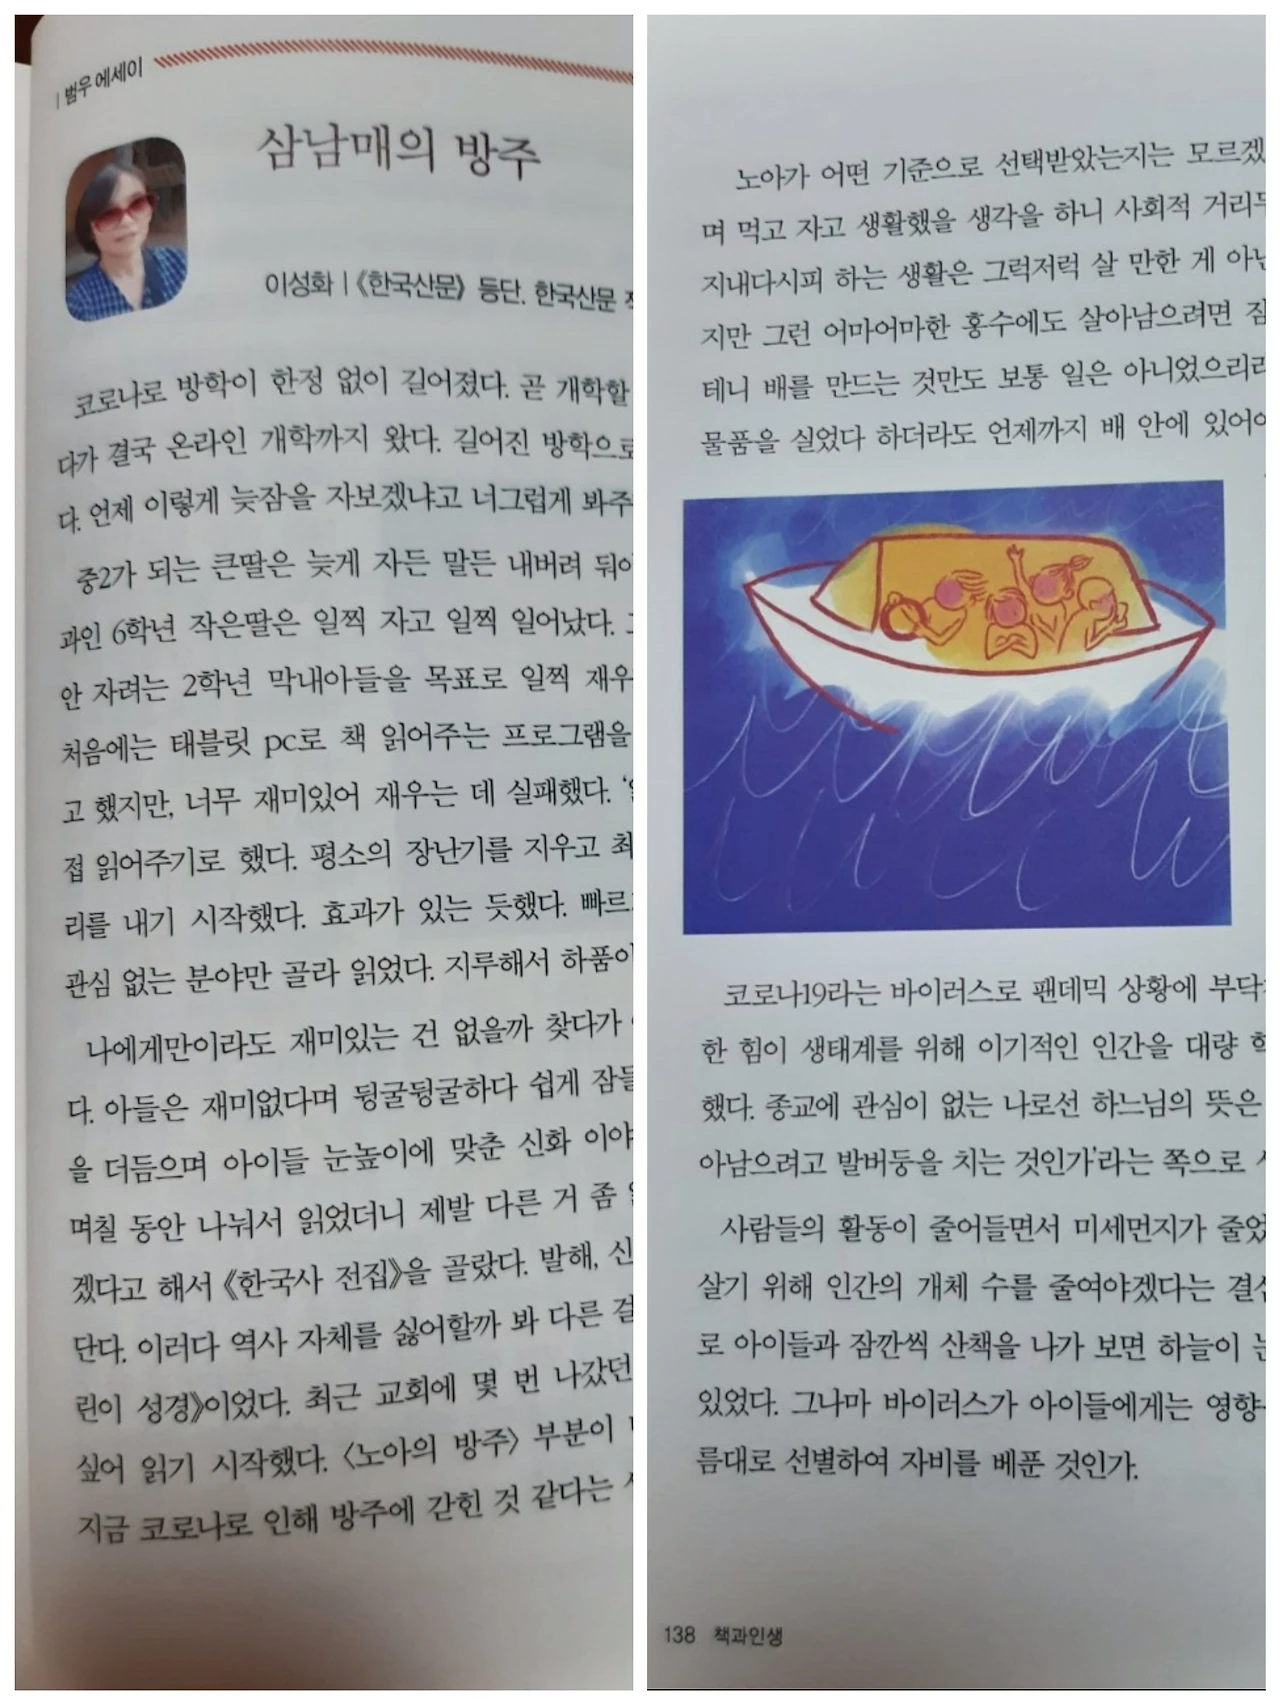 범우 에세이
삼남매의 방주
이성화 | 《한국산문》 등단. 한국산문
코로나로 방학이 한정 없이 길어졌다. 곧 개학할
다가 결국 온라인 개학까지 왔다. 길어진 방학으로
다. 언제 이렇게 늦잠을 자보겠냐고 너그럽게 봐주
중2가 되는 큰딸은 늦게 자든 말든 내버려 둬
과인 6학년 작은딸은 일찍 자고 일찍 일어났다.
안 자려는 2학년 막내아들을 목표로 일찍 재우
처음에는 태블릿 pc로 책 읽어주는 프로그램을
고 했지만, 너무 재미있어 재우는 데 실패했다.
접 읽어주기로 했다. 평소의 장난기를 지우고 최
리를 내기 시작했다. 효과가 있는 듯했다. 빠르
관심 없는 분야만 골라 읽었다. 지루해서 하품이
나에게만이라도 재미있는 건 없을까 찾다가
다. 아들은 재미없다며 뒹굴뒹굴하다 쉽게 잠들
을 더듬으며 아이들 눈높이에 맞춘 신화 이야
며칠 동안 나눠서 읽었더니 제발 다른 거 좀
겠다고 해서 《한국사 전집》을 골랐다. 발해, 신
단다. 이러다 역사 자체를 싫어할까 봐 다른 걸
린이 성경》이었다. 최근 교회에 몇 번 나갔던
싶어 읽기 시작했다. 〈노아의 방주〉 부분이
지금 코로나로 인해 방주에 갇힌 것 같다는
노아가 어떤 기준으로 선택받았는지는 모르겠
며 먹고 자고 생활했을 생각을 하니 사회적 거리두
지내다시피 하는 생활은 그럭저럭 살 만한 게 아닌
지만 그런 어마어마한 홍수에도 살아남으려면 짐
테니 배를 만드는 것만도 보통 일은 아니었으리라
물품을 실었다 하더라도 언제까지 배 안에 있어야
코로나19라는 바이러스로 팬데믹 상황에 부닥
한 힘이 생태계를 위해 이기적인 인간을 대량 학
했다. 종교에 관심이 없는 나로선 하느님의 뜻은
아남으려고 발버둥을 치는 것인가'라는 쪽으로
사람들의 활동이 줄어들면서 미세먼지가 줄었
살기 위해 인간의 개체 수를 줄여야겠다는 결
로 아이들과 잠깐씩 산책을 나가 보면 하늘이
있었다. 그나마 바이러스가 아이들에게는 영향
름대로 선별하여 자비를 베푼 것인가.
138 책과인생